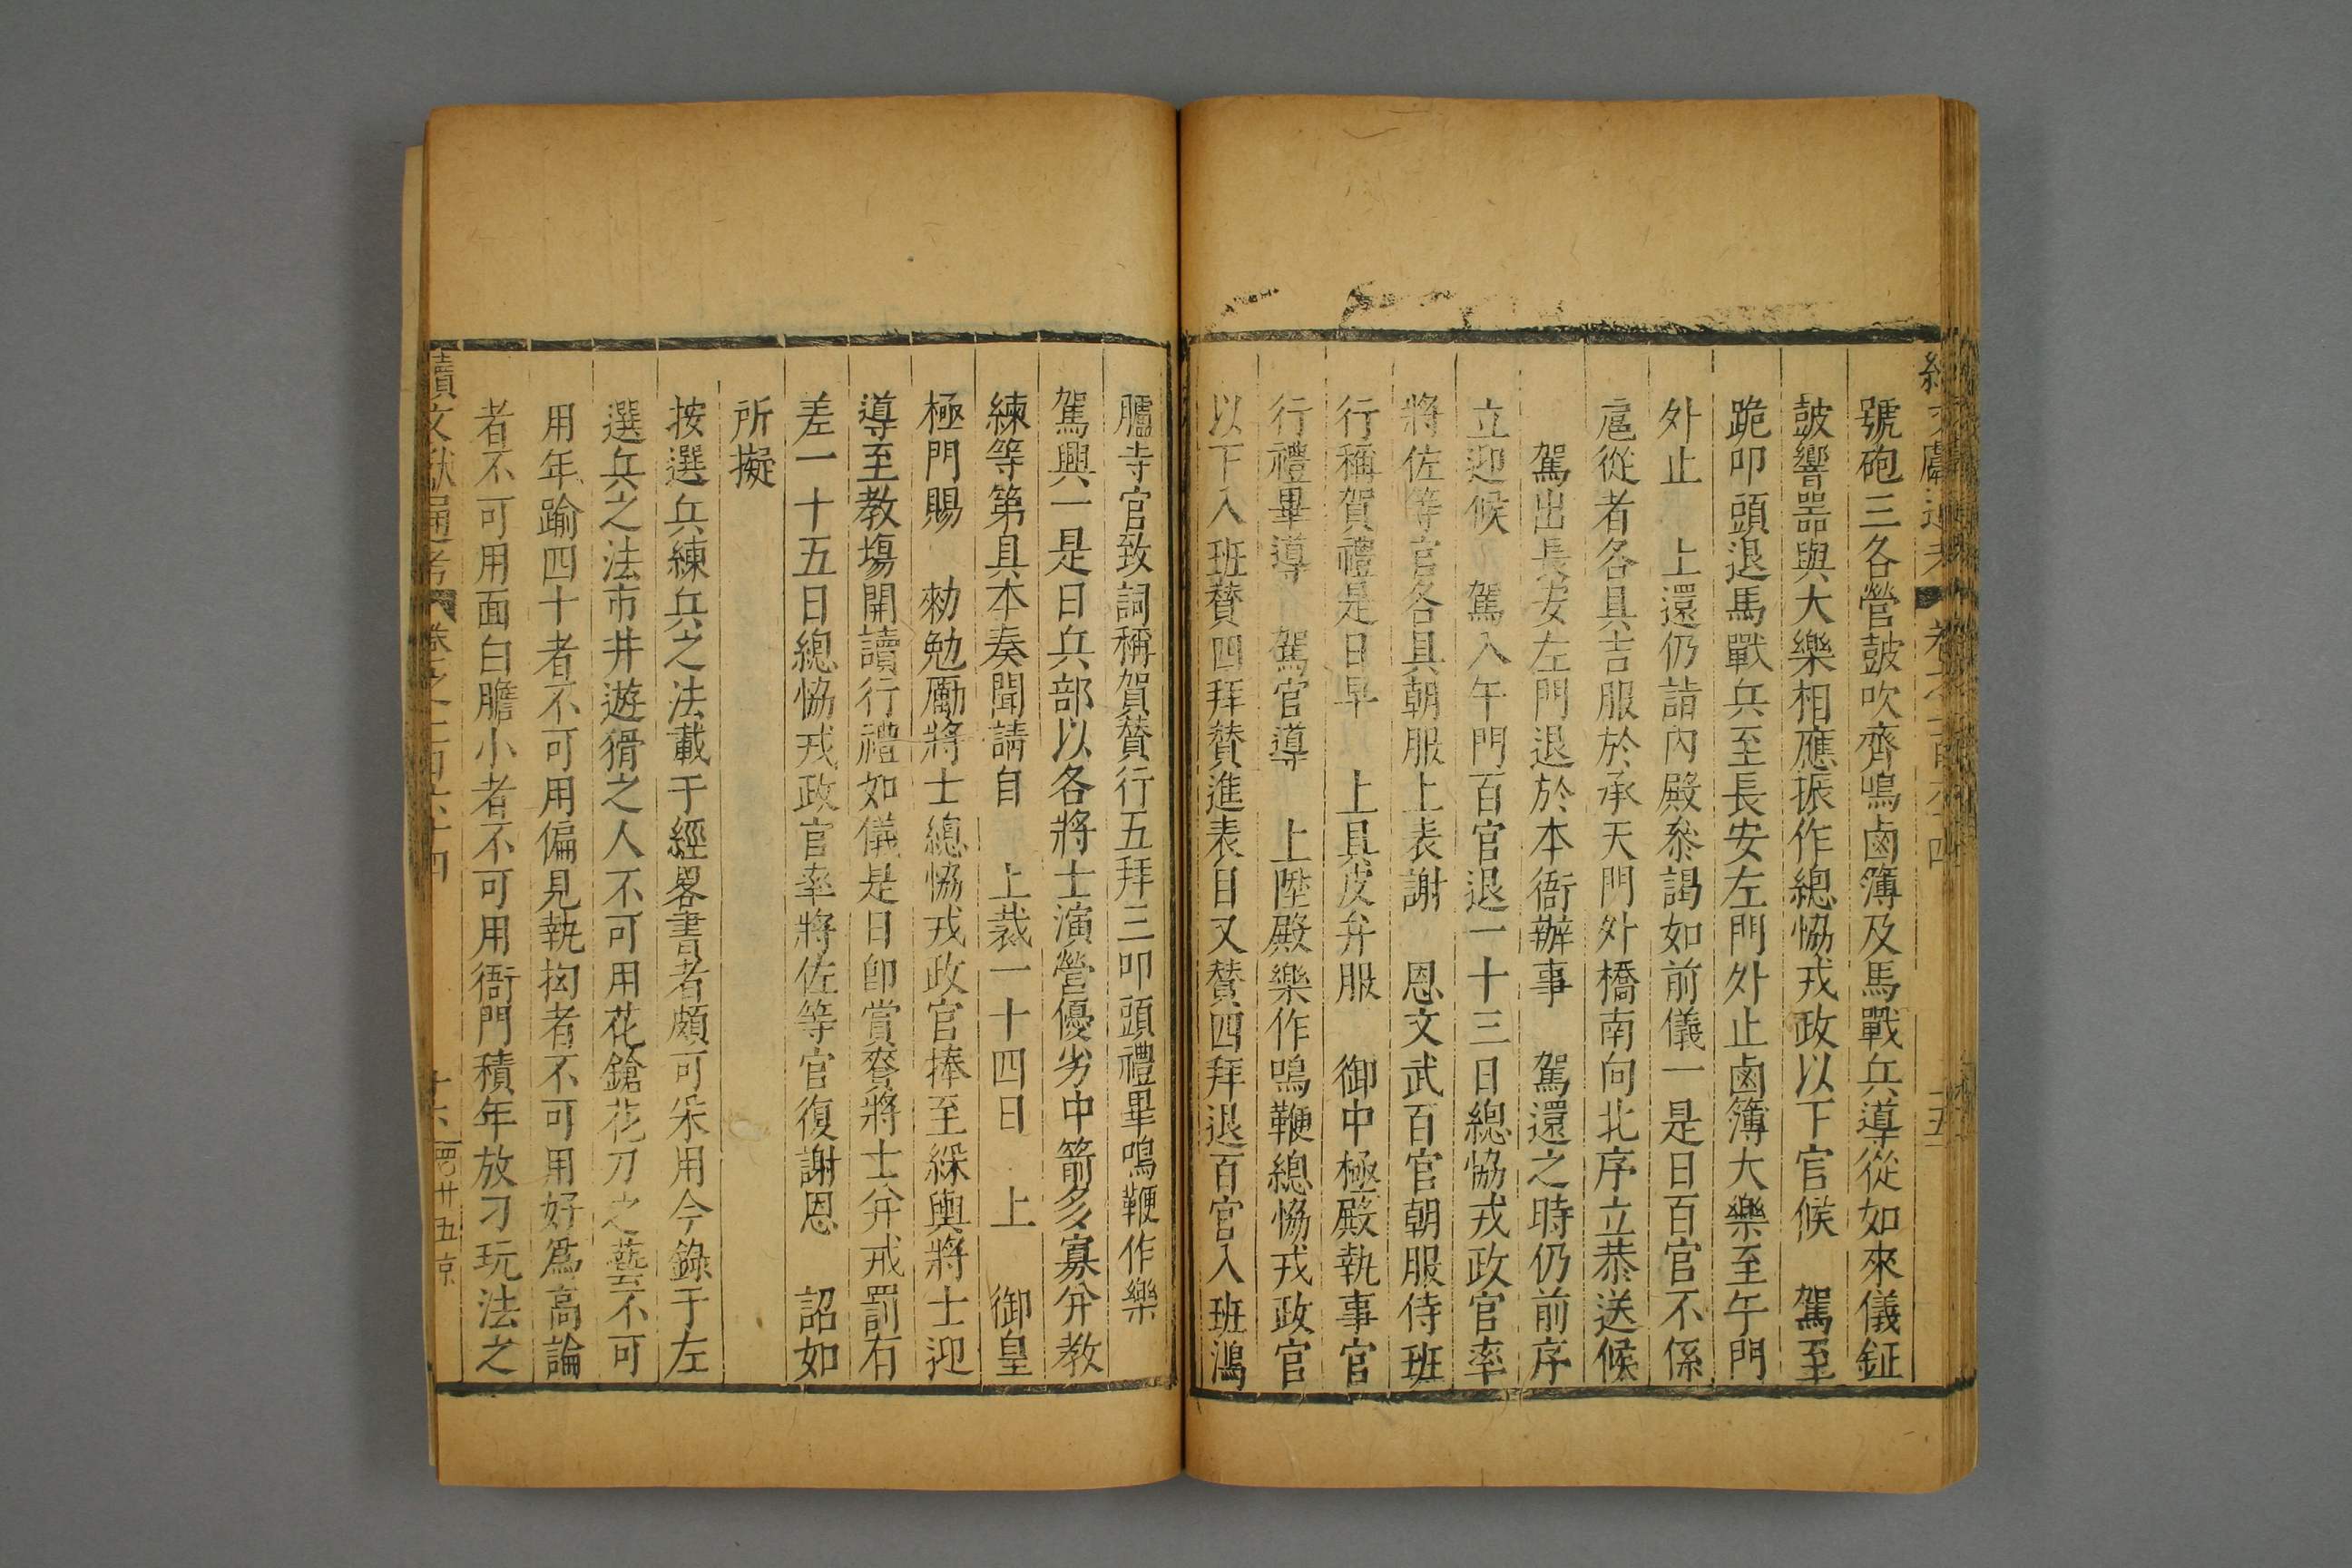 號砲三各營鼓吹齊鳴鹵簿及馬戰兵導從如來儀鉦
鼓響器與大樂相應振作總恊戎政以下官候　駕至
跪叩頭退馬戰兵至長安左門外止鹵簿大樂至午門
外止　上還仍詣內殿叅謁如前儀一是日百官不係
扈從者各具吉服於承天門外橋南向北序立恭送候
駕出長安左門退於本衙辦事　駕還之時仍前序
立迎候　駕入午門百官退一十三日總恊戎政官率
將佐等官各具朝服上表謝　恩文武百官朝服侍班
行稱賀禮是日早　上具皮弁服　御中極殿執事官
行禮畢導　駕官導　上陞殿樂作鳴鞭總恊戎政官
以下入班贊四拜贊進表目又贊四拜退百官入班鴻
臚寺官致詞稱賀贊行五拜三叩頭禮畢鳴鞭作樂
駕興一是日兵部以各將士演營優劣中箭多寡分教
練等第具本奏聞請自　上裁一十四日　上　御皇
極門賜　勑勉勵將士總恊戎政官捧至綵輿將士迎
導至教場開讀行禮如儀是日卽賞賚將士并戒罰有
差一十五日總恊戎政官率將佐等官復謝恩　詔如
所擬
按選兵練兵之法載于經畧書者頗可采用今錄于左
選兵之法市井遊猾之人不可用花鎗花刀之藝不可
用年踰四十者不可用偏見執拗者不可用好爲高論
者不可用面白膽小者不可用衙門積年放刁玩法之
續文獻通考　卷之一百六十四　十六　四廿五京